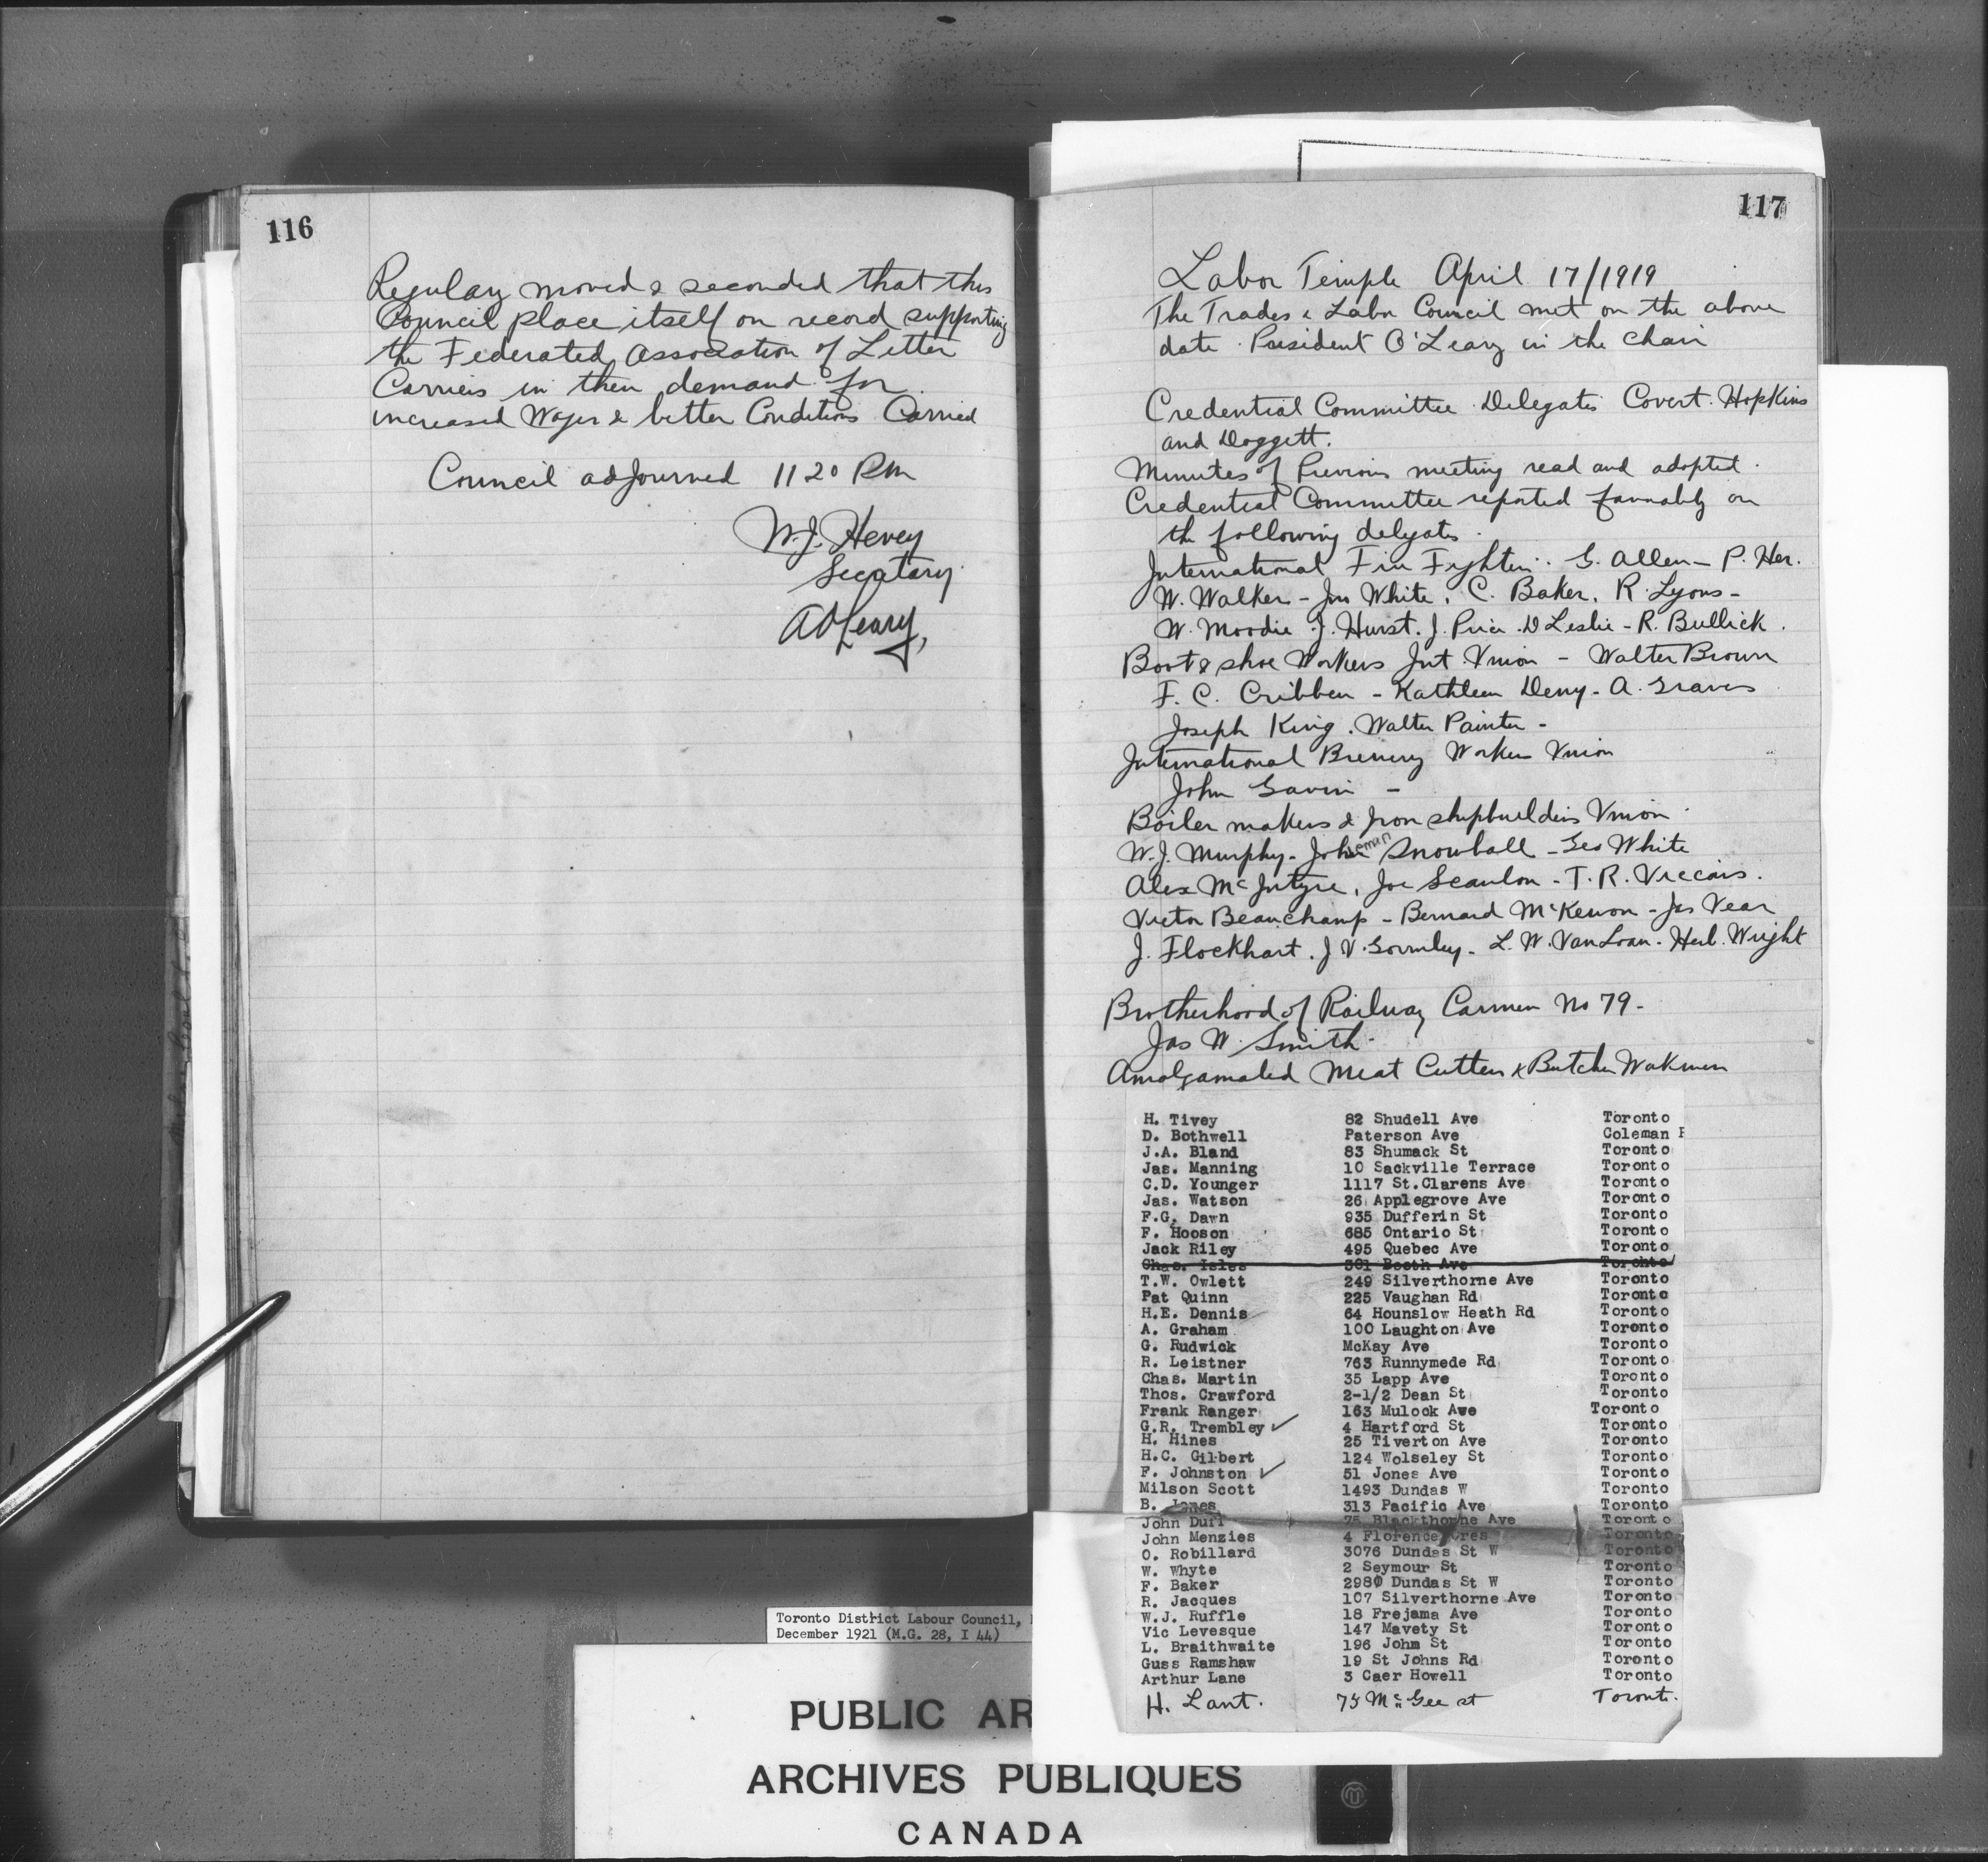 116
Regulary moved & seconded that this
Council place itself on record supporting
the Federated Association of Letter
Carriers in their demand for
increased Wages & better Conditions Carried
Council adjourned 11 20 P.m
W.J. Hevey
Secretary
A O'Leary,
117
Labor Temple April 17/1919
The Trades & Labor Council met on the above
date. President O'Leary in the Chair
Credential Committee Delegates Covert. Hopkins
and Doggett.
Minutes of Previous meeting read and adopted.
Credential Committee reported favorably on
the following delegates.
International Fire Fighters. G. Allen - P. Her.
W. Walker - Jas White. C. Baker. R. Lyons -
W. Moodie. J. Hurst. J. Price. D Leslie - R. Bullick.
Boot & shoe Workers Int. Union - Walter Brown
F. C. Cribben - Kathleen Deny - A. Graves
Joseph King. Walter Painter -
International Brewery Workers Union
John Gavin -
Boiler makers & Iron shipbuilders Union
W.J. Murphy - John Snowball - Geo White
Alex McIntyre, Joe Scanlon - T. R. Viccars.
Victor Beauchamp - Bernard McKewon - Jas Vear
J. Flockhart. J V. Gormley - L. W. VanLoan - Herb. Wright
Brotherhood of Railway Carmen No 79 -
Jas W. Smith
Amalgamated Meat Cutters & Butcher Workmen
H. Tivey 82 Shudell Ave Toronto
D. Bothwell Paterson Ave Coleman P
J.A. Bland 83 Shumack St Toronto
Jas. Manning 10 Sackville Terrace Toronto
C.D. Younger 1117 St.Clarens Ave Toronto
Jas. Watson 26 Applegrove Ave Toronto
F.G. Dawn 935 Dufferin St Toronto
F. Hooson 685 Ontario St Toronto
Jack Riley 495 Quebec Ave Toronto
Chas. Isles 301 Booth Ave Toronto
T.W. Owlett 249 Silverthorne Ave Toronto
Pat Quinn 225 Vaughan Rd Toronto
H.E. Dennis 64 Hounslow Heath Rd Toronto
A. Graham 100 Laughton Ave Toronto
G. Rudwick McKay Ave Toronto
R. Leistner 763 Runnymede Rd Toronto
Chas. Martin 35 Lapp Ave Toronto
Thos. Crawford 2-1/2 Dean St Toronto
Frank Ranger 163 Mulock Ave Toronto
G.R. Trembley ✓ 4 Hartford St Toronto
H. Hines 25 Tiverton Ave Toronto
H.C. Gilbert 124 Wolseley St Toronto
F. Johnston ✓ 51 Jones Ave Toronto
Milson Scott 1493 Dundas W Toronto
B. Jones 313 Pacific Ave Toronto
John Duff 75 Blackthorne Ave Toronto
John Menzies 4 Florence Cres Toronto
O. Robillard 3076 Dundas St W Toronto
W. Whyte 2 Seymour St Toronto
F. Baker 2980 Dundas St W Toronto
R. Jacques 107 Silverthorne Ave Toronto
W.J. Ruffle 18 Frejama Ave Toronto
Vic Levesque 147 Mavety St Toronto
L. Braithwaite 196 John St Toronto
Guss Ramshaw 19 St Johns Rd Toronto
Arthur Lane 3 Caer Howell Toronto
H. Lant. 75 McGee st Toronto.
Toronto District Labour Council,
December 1921 (M.G. 28, I 44)
PUBLIC AR
ARCHIVES PUBLIQUES
CANADA